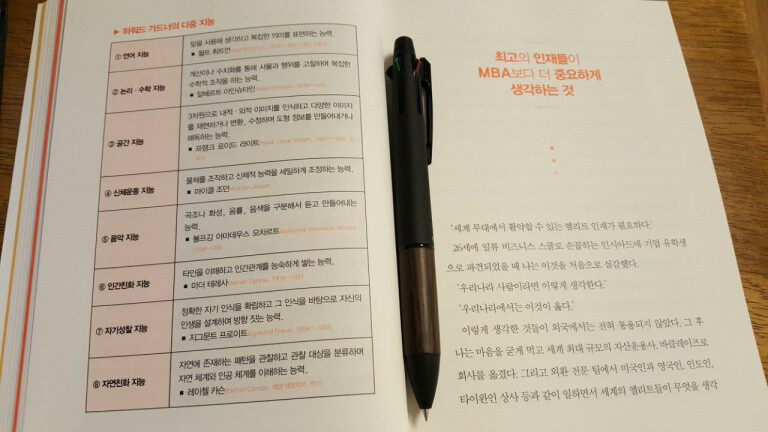 ▶ 하워드 가드너의 다중 지능
① 언어 지능
말을 사용해 생각하고 복잡한 의미를 표현하는 능력.
■ 월트 휘트먼
② 논리 · 수학 지능
계산이나 수치화를 통해 사물과 행위를 고찰하며 복잡한
수학적 조작을 하는 능력.
■ 알베르트 아인슈타인
③ 공간 지능
3차원으로 내적 · 외적 이미지를 인식하고 다양한 이미지
를 재현하거나 변환, 수정하며 도형 정보를 만들어내거나
해독하는 능력.
■ 프랭크 로이드 라이트
④ 신체운동 지능
물체를 조작하고 신체적 능력을 세밀하게 조정하는 능력.
■ 마이클 조던
⑤ 음악 지능
곡조나 화성, 음률, 음색을 구분해서 듣고 만들어내는
능력.
■ 볼프강 아마데우스 모차르트
⑥ 인간친화 지능
타인을 이해하고 인간관계를 능숙하게 쌓는 능력.
■ 마더 테레사
⑦ 자기성찰 지능
정확한 자기 인식을 확립하고 그 인식을 바탕으로 자신의
인생을 설계하며 방향 짓는 능력.
■ 지그문트 프로이트Sigmund Freud, 1856~1939
⑧ 자연친화 지능
자연에 존재하는 패턴을 관찰하고 관찰 대상을 분류하며
자연 체계와 인공 체계를 이해하는 능력.
■ 레이첼 카슨
최고의 인재들이
MBA보다 더 중요하게
생각하는 것
‘세계 무대에서 활약할 수 있는 엘리트 인재가 필요하다.’
26세에 일류 비즈니스 스쿨로 손꼽히는 인시아드에 기업 유학생
으로 파견되었을 때 나는 이것을 처음으로 실감했다.
‘우리나라 사람이라면 이렇게 생각한다.’
‘우리나라에서는 이것이 옳다.’
이렇게 생각한 것들이 외국에서는 전혀 통용되지 않았다. 그 후
나는 마음을 굳게 먹고 세계 최대 규모의 자산운용사, 바클레이즈로
회사를 옮겼다. 그리고 외환 전문 팀에서 미국인과 영국인, 인도인,
타이완인 상사 등과 같이 일하면서 세계의 엘리트들이 무엇을 생각